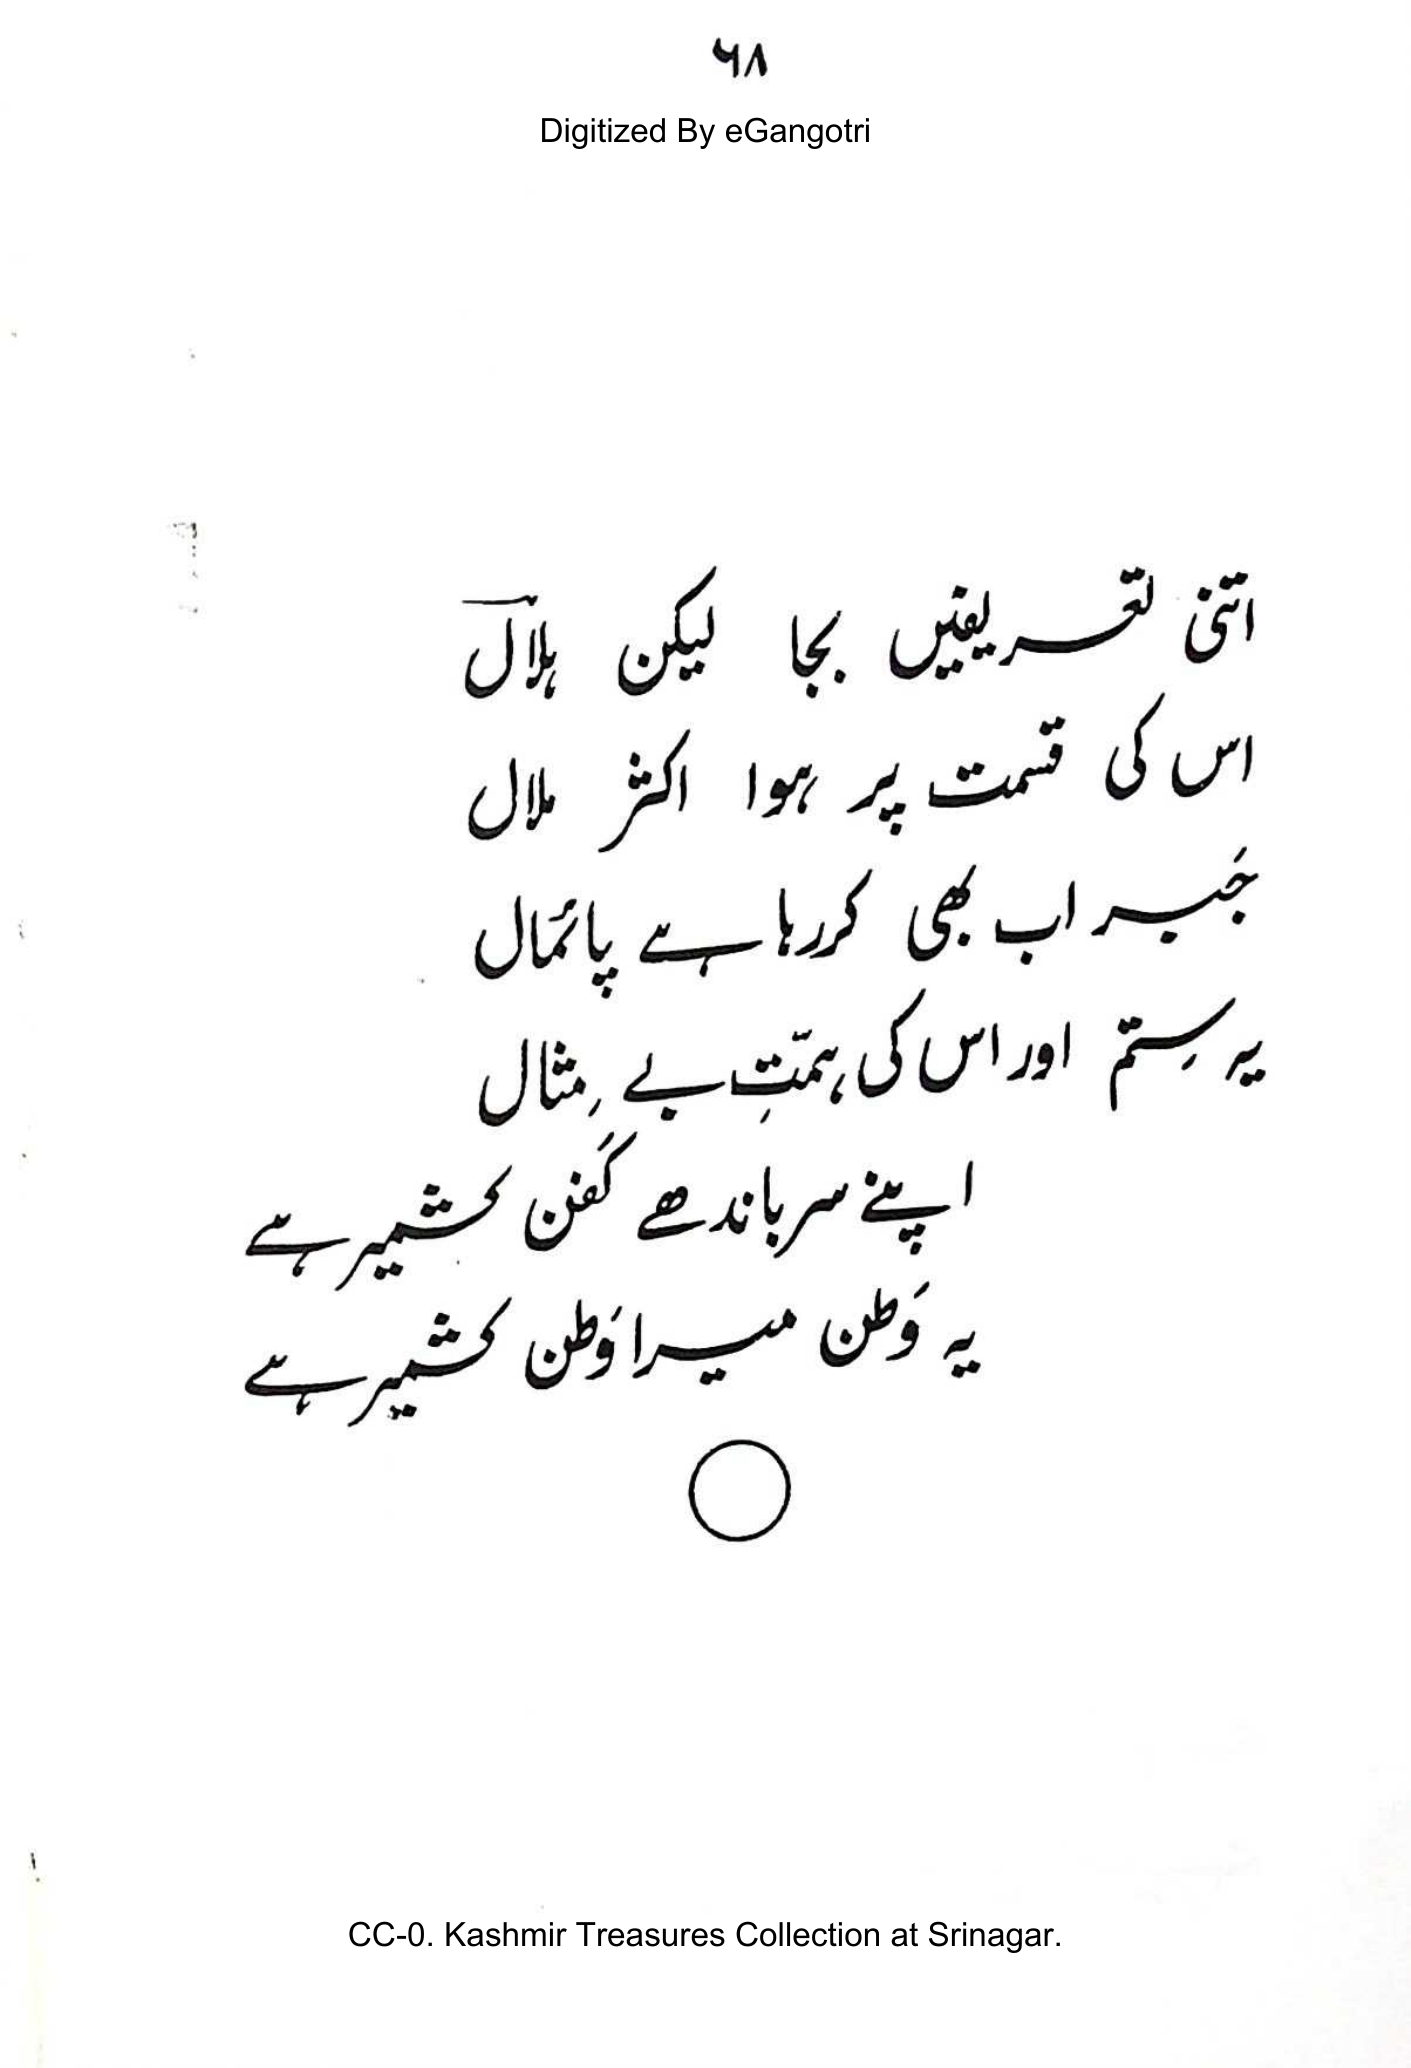 ۶۸
Digitized By eGangotri
اتنی تعریفیں بجا لیکن ہلالؔ
اس کی قسمت پر ہوا اکثر ملال
جَبر اب بھی کررہا ہے پائمال
یہ سِتم اور اس کی ہمّتِ بے مِثال
اپنے سر باندھے کَفن کشمیر ہے
یہ وَطن میرا وَطن کشمیر ہے
CC-0. Kashmir Treasures Collection at Srinagar.